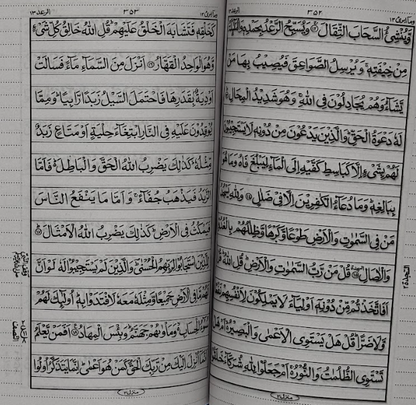 ۳۵۲
وَّيُنْشِئُ السَّحَابَ الثِّقَالَ ۝ وَيُسَبِّحُ الرَّعْدُ بِحَمْدِهٖ
مِنْ خِيْفَتِهٖ ۚ وَيُرْسِلُ الصَّوَاعِقَ فَيُصِيْبُ بِهَا مَنْ
يَّشَآءُ وَهُمْ يُجَادِلُوْنَ فِى اللّٰهِ ۚ وَهُوَ شَدِيْدُ الْمِحَالِ
لَهٗ دَعْوَةُ الْحَقِّ ؕ وَالَّذِيْنَ يَدْعُوْنَ مِنْ دُوْنِهٖ لَا يَسْتَجِيْبُوْنَ
لَهُمْ بِشَىْءٍ اِلَّا كَبَاسِطِ كَفَّيْهِ اِلَى الْمَآءِ لِيَبْلُغَ فَاهُ وَمَا هُوَ
بِبَالِغِهٖ ؕ وَمَا دُعَآءُ الْكٰفِرِيْنَ اِلَّا فِىْ ضَلٰلٍ ۝ وَلِلّٰهِ يَسْجُدُ
مَنْ فِى السَّمٰوٰتِ وَالْاَرْضِ طَوْعًا وَّكَرْهًا وَّظِلٰلُهُمْ بِالْغُدُوِّ
وَالْاٰصَالِ ۝ قُلْ مَنْ رَّبُّ السَّمٰوٰتِ وَالْاَرْضِ ؕ قُلِ اللّٰهُ ؕ
اَفَاتَّخَذْتُمْ مِّنْ دُوْنِهٖٓ اَوْلِيَآءَ لَا يَمْلِكُوْنَ لِاَنْفُسِهِمْ
وَّلَا ضَرًّا ؕ قُلْ هَلْ يَسْتَوِى الْاَعْمٰى وَالْبَصِيْرُ ۙ اَمْ هَلْ
تَسْتَوِى الظُّلُمٰتُ وَالنُّوْرُ ۚ اَمْ جَعَلُوْا لِلّٰهِ شُرَكَآءَ
۳۵۳
كَخَلْقِهٖ فَتَشَابَهَ الْخَلْقُ عَلَيْهِمْ ؕ قُلِ اللّٰهُ خَالِقُ كُلِّ شَىْءٍ
وَّهُوَ الْوَاحِدُ الْقَهَّارُ ۝ اَنْزَلَ مِنَ السَّمَآءِ مَآءً فَسَالَتْ
اَوْدِيَةٌۢ بِقَدَرِهَا فَاحْتَمَلَ السَّيْلُ زَبَدًا رَّابِيًا ؕ وَمِمَّا
يُوْقِدُوْنَ عَلَيْهِ فِى النَّارِ ابْتِغَآءَ حِلْيَةٍ اَوْ مَتَاعٍ زَبَدٌ
مِّثْلُهٗ ؕ كَذٰلِكَ يَضْرِبُ اللّٰهُ الْحَقَّ وَالْبَاطِلَ ؕ فَاَمَّا
الزَّبَدُ فَيَذْهَبُ جُفَآءً ۚ وَاَمَّا مَا يَنْفَعُ النَّاسَ
فَيَمْكُثُ فِى الْاَرْضِ ؕ كَذٰلِكَ يَضْرِبُ اللّٰهُ الْاَمْثَالَ ۝
لِلَّذِيْنَ اسْتَجَابُوْا لِرَبِّهِمُ الْحُسْنٰى ؕ وَالَّذِيْنَ لَمْ يَسْتَجِيْبُوْا لَهٗ لَوْ اَنَّ
لَهُمْ مَّا فِى الْاَرْضِ جَمِيْعًا وَّمِثْلَهٗ مَعَهٗ لَافْتَدَوْا بِهٖ ؕ اُولٰٓئِكَ لَهُمْ
سُوْٓءُ الْحِسَابِ ۙ وَمَاْوٰىهُمْ جَهَنَّمُ ؕ وَبِئْسَ الْمِهَادُ ۝ اَفَمَنْ يَّعْلَمُ
اَنَّمَآ اُنْزِلَ اِلَيْكَ مِنْ رَّبِّكَ الْحَقُّ كَمَنْ هُوَ اَعْمٰى ؕ اِنَّمَا يَتَذَكَّرُ اُولُوا